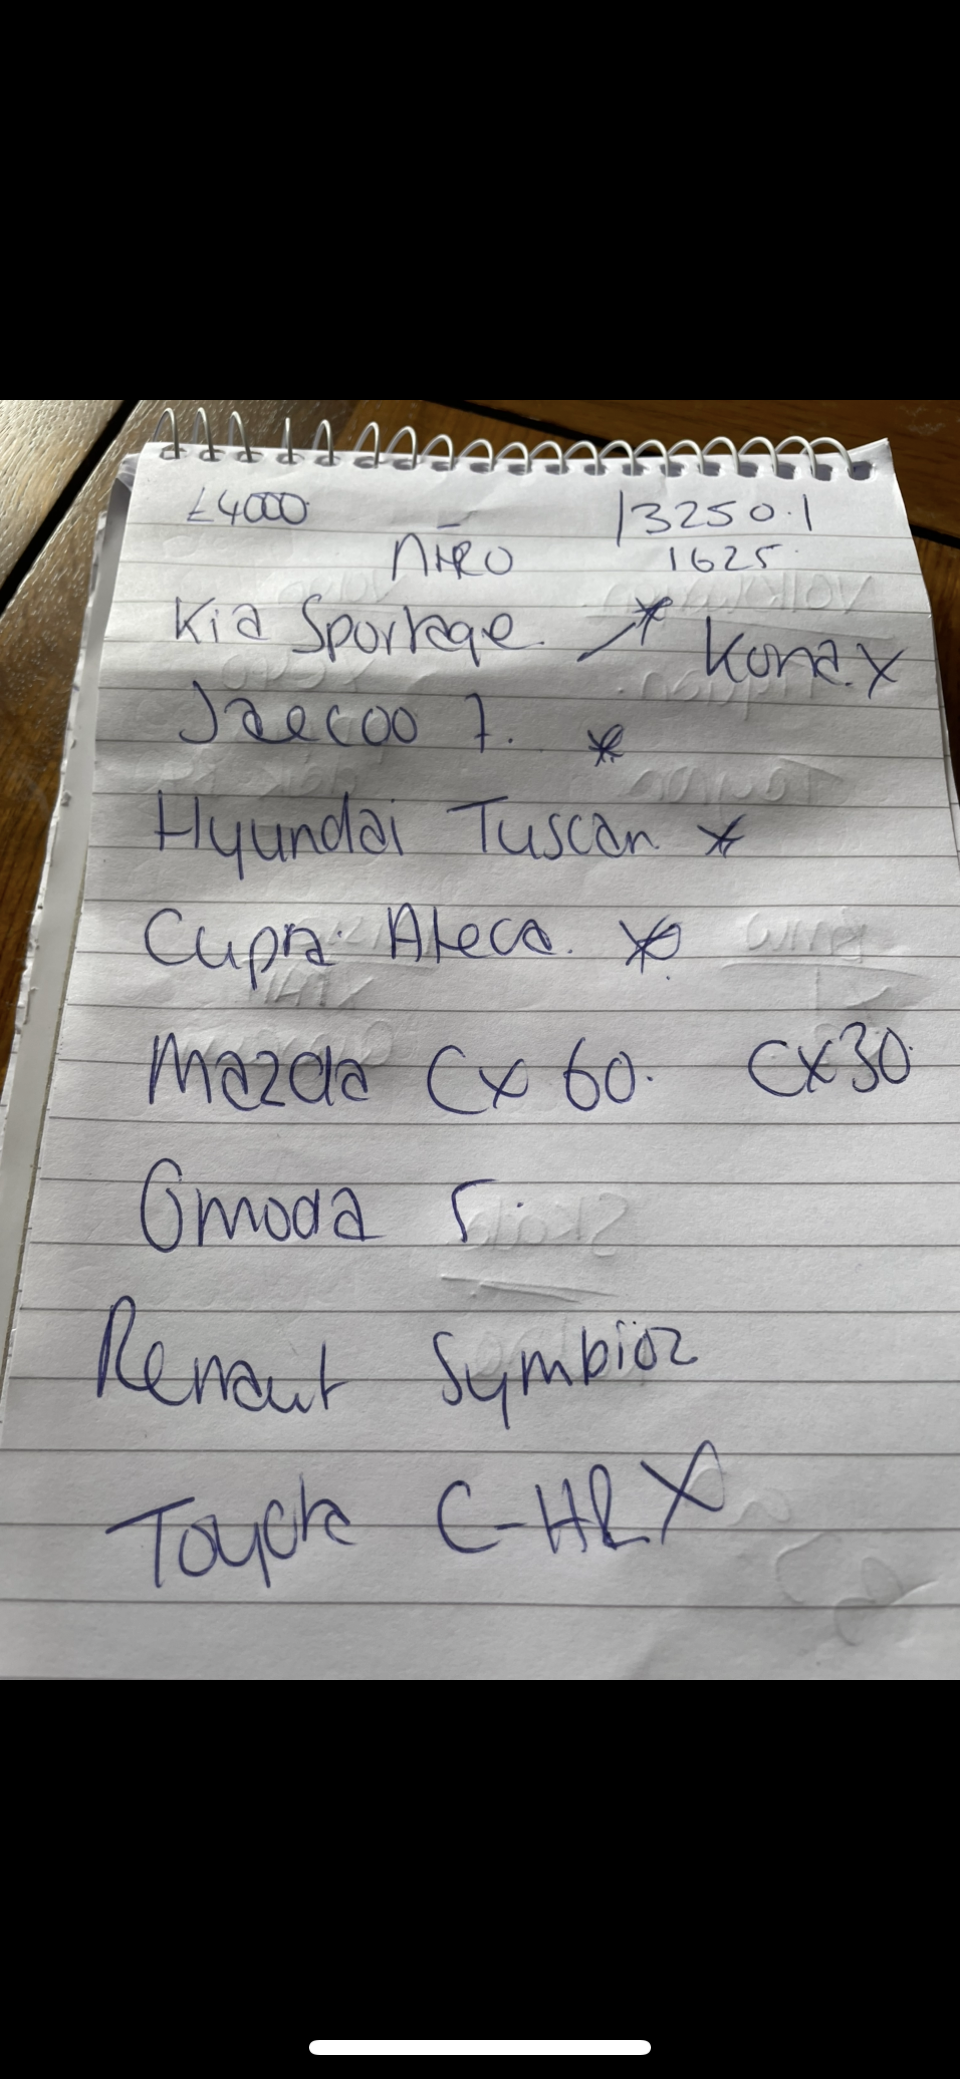 £4000 13250.1
NIRO 1625
Kia Sportage. Kona. X
Jaecoo 7. *
Hyundai Tuscan *
Cupra Ateca. *
Mazda Cx 60. Cx30
Omoda 5.
Renault Symbioz
Toyota C-HR X